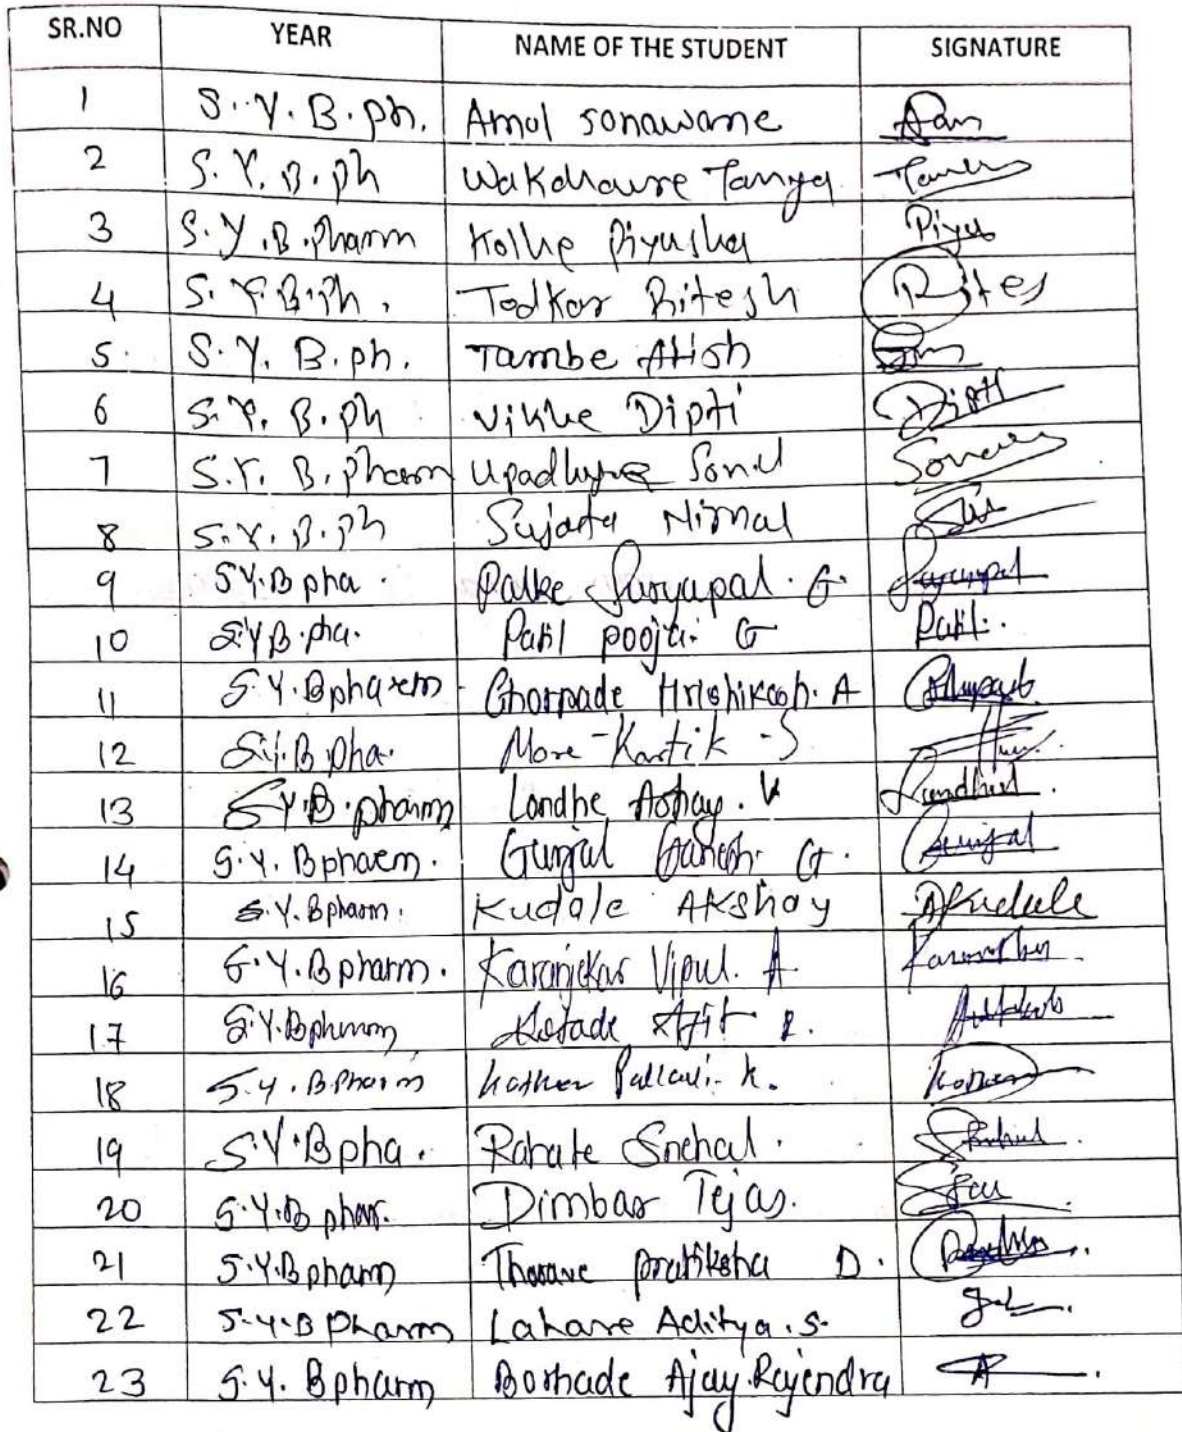 SR.NO YEAR NAME OF THE STUDENT SIGNATURE
1 S.Y.B.ph. Amol sonawane
2 S.Y.B.ph Wakchaure Tanya
3 S.Y.B.Pharm Kolhe Piyusha Piyu
4 S.Y.B.Ph. Todkar Ritesh Rites
5. S.Y.B.ph. Tambe Atish
6 S.Y.B.ph Vikhe Dipti Dipti
7 S.Y.B.pharm Upadhyay
8 S.Y.B.ph Sujata Nirmal
9 S.Y.B pha. Palke Suryapal. G. Suryapal
10 S.Y.B.pha. Patil pooja. G Patil.
11 S.Y.B pharm Ghorpade Hrishikesh. A
12 S.Y.B.pha. More-Kartik-S
13 S.Y.B.pharm Landhe Ashay. V
14 S.Y.Bpharm. Gunjal Ganesh. G. Gunjal
15 S.Y.Bpharm. Kudale AKshay AKudale
16 S.Y.Bpharm. Karanjekar Vipul. A
17 S.Y.Bpharm Ajit
18 S.Y.B Pharm Pallavi. k.
19 S.Y.Bpha. Rahate Snehal.
20 S.Y.B phar. Dimbar Tejas.
21 S.Y.Bpharm Thorave pratiksha D.
22 S.Y.B Pharm Lahare Aditya.S.
23 S.Y. Bpharm Borhade Ajay.Rajendra A